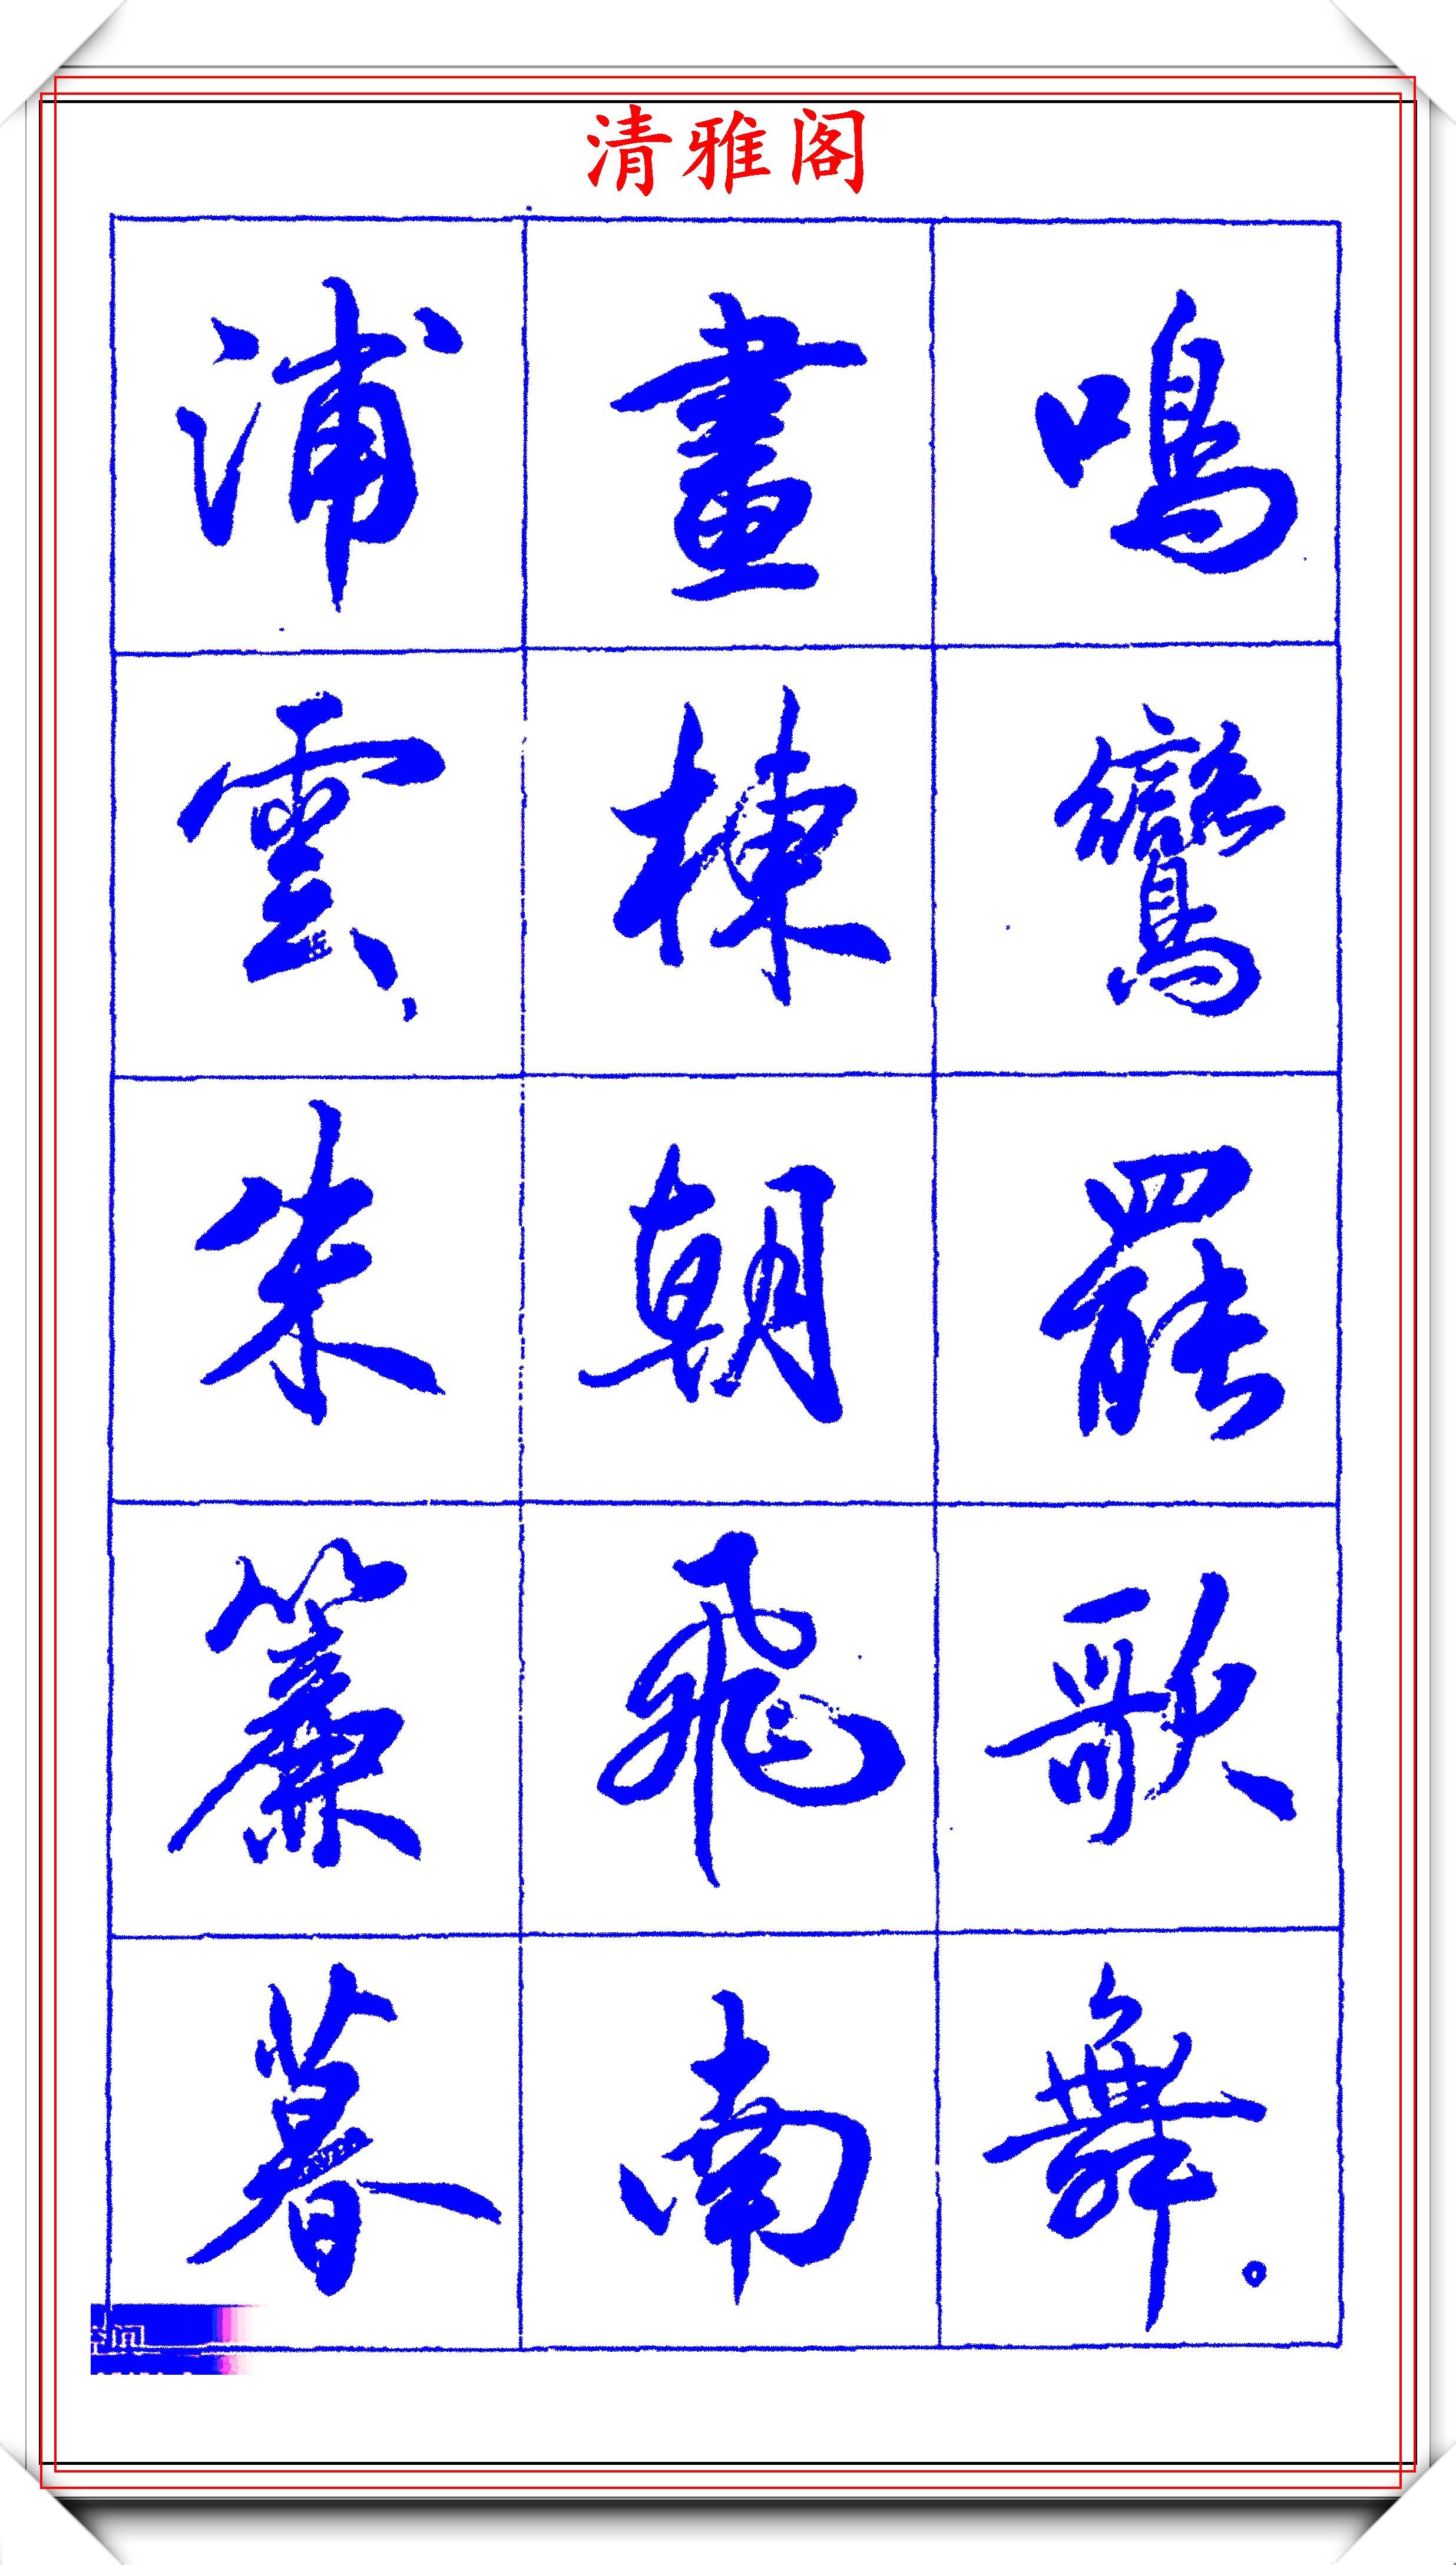 清雅阁
鳴鸞罷歌舞。
畫棟朝飛南
浦雲、朱簾暮